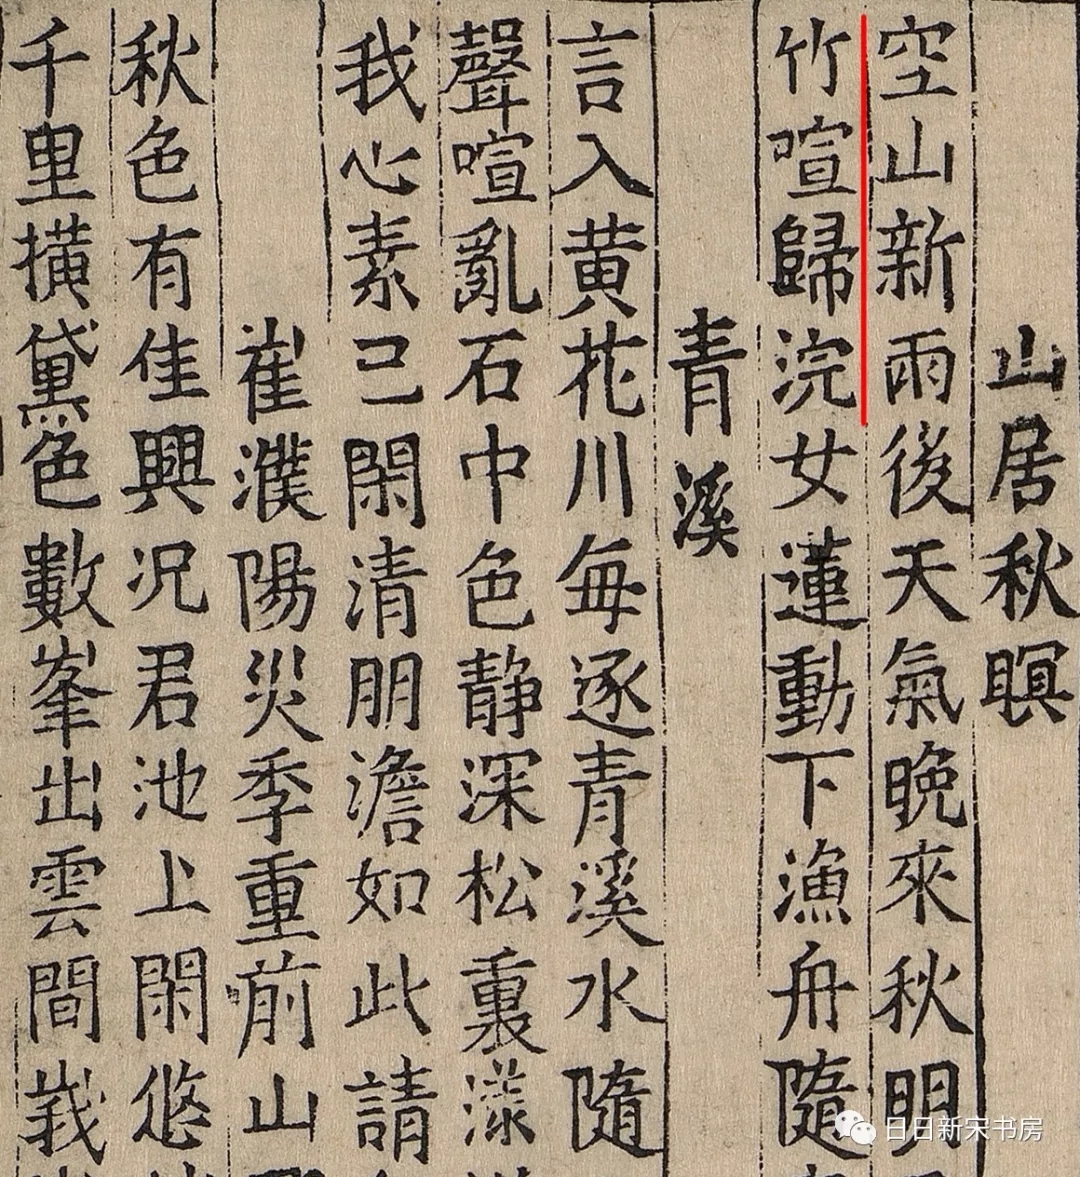 山居秋暝
空山新雨後天氣晚來秋明
竹喧歸浣女蓮動下漁舟隨
青溪
言入黄花川每逐青溪水隨
聲喧亂石中色静深松裏漾
我心素已閑清朋澹如此請
崔濮陽災季重前山
秋色有佳興况君池上閑悠
千里横黛色數峯出雲間嵯
日日新宋书房